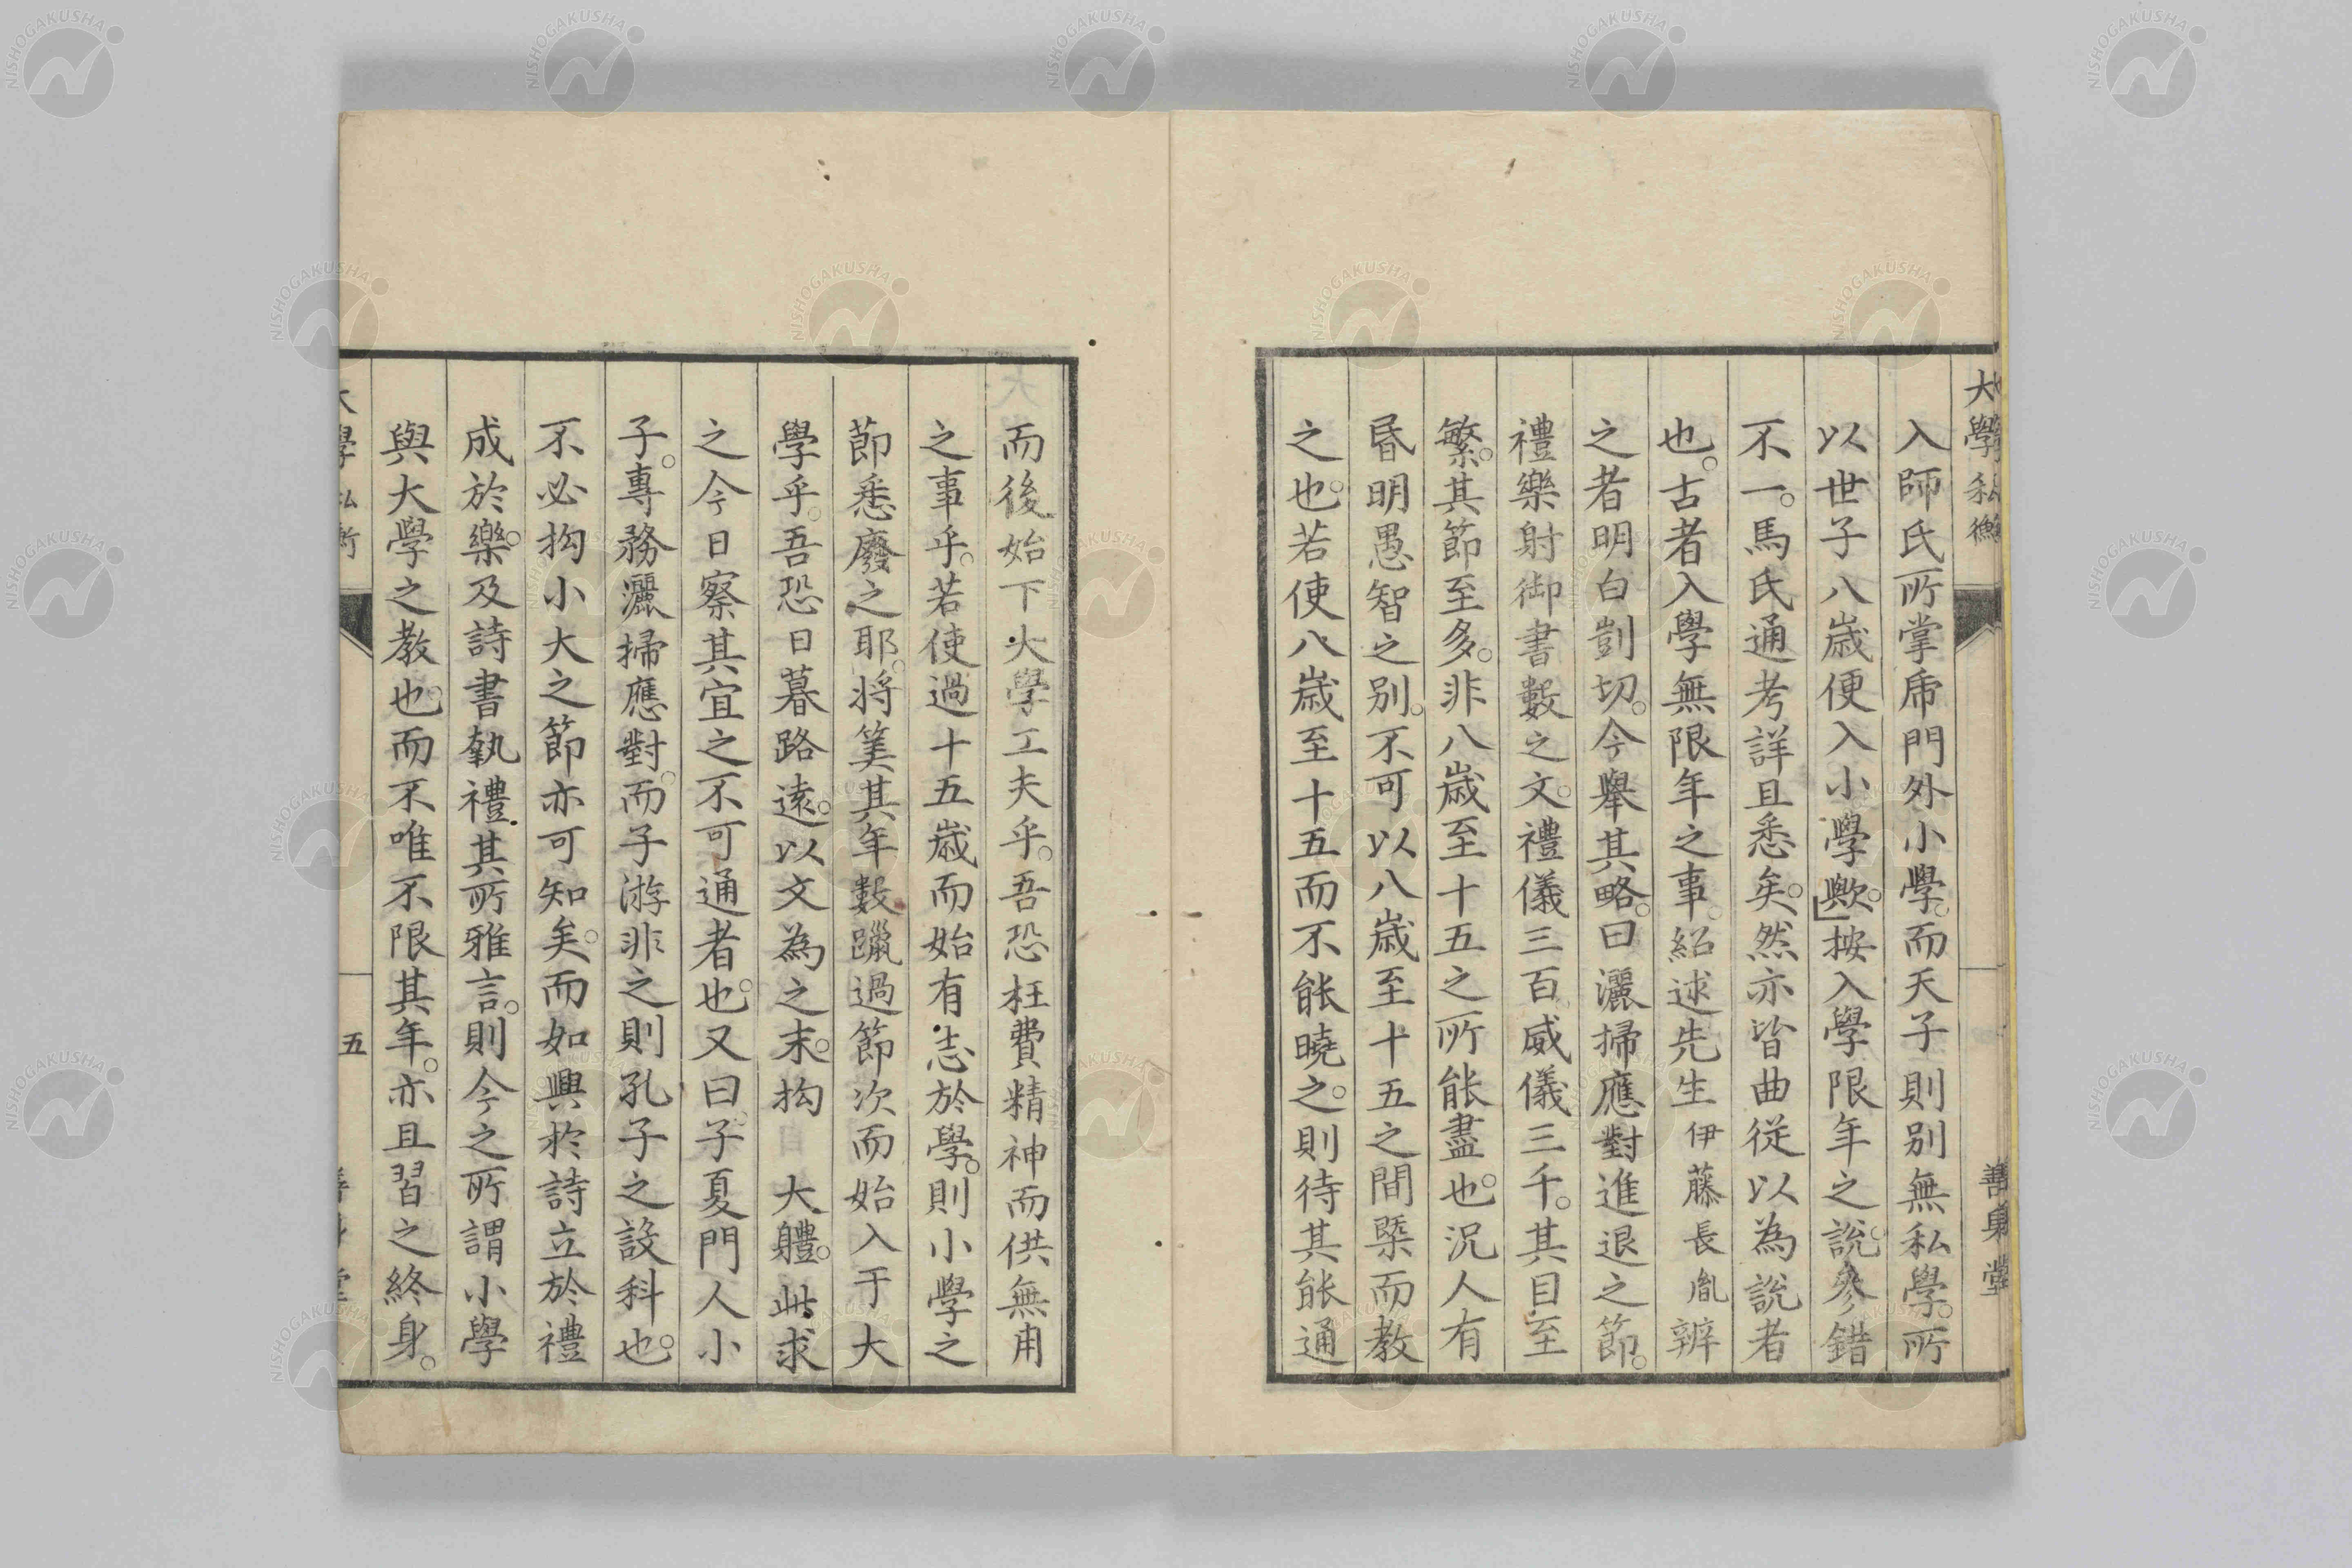 大學私衡
善身堂
入師氏所掌乕門外小學。而天子則別無私學。所
以世子八歳便入小學歟。」按入學限年之說。參錯
不一。馬氏通考詳且悉矣。然亦皆曲從以為說者
也。古者入學無限年之事。紹述先生伊藤長胤辨
之者明白剴切。今舉其略。曰灑掃應對進退之節。
禮樂射御書數之文。禮儀三百。威儀三千。其目至
繁。其節至多。非八歳至十五之所能盡也。況人有
昏明愚智之別。不可以八歳至十五之間槩而教
之也。若使八歳至十五而不能曉之。則待其能通
而後始下大學工夫乎。吾恐枉費精神而供無用
之事乎。若使過十五歳而始有志於學。則小學之
節悉廢之耶。將筭其年數躐過節次而始入于大
學乎。吾恐日暮路遠。以文為之末。拘 大體。此求
之今日察其宜之不可通者也。又曰子夏門人小
子。專務灑掃應對。而子游非之則孔子之設科也。
不必拘小大之節亦可知矣。而如興於詩立於禮
成於樂。及詩書執禮。其所雅言。則今之所謂小學
與大學之教也。而不唯不限其年。亦且習之終身。
大學私衡
五
善身堂
NISHOGAKUSHA